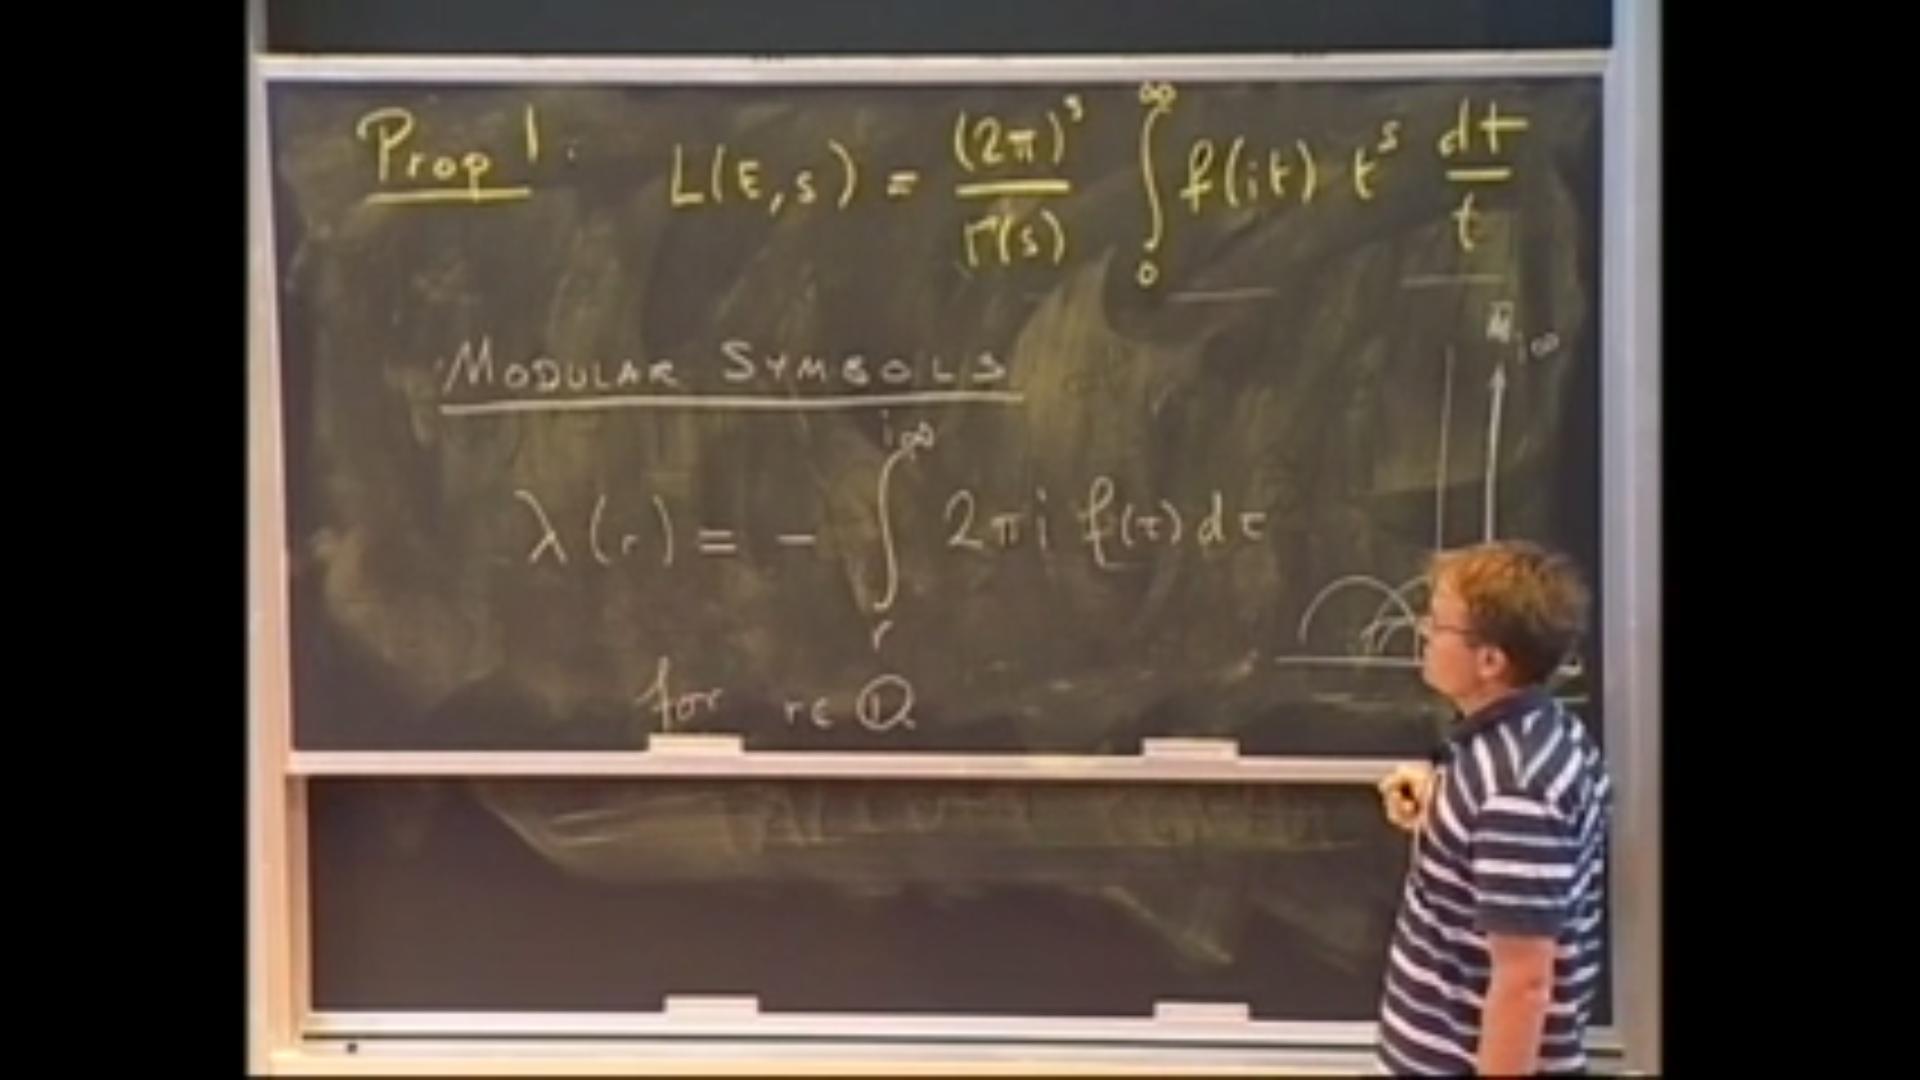 Prop 1. L(E,s) = (2π)^s / Γ(s) ∫_0^∞ f(it) t^s dt/t
MODULAR SYMBOLS
i∞
λ(r) = - ∫_r^{i∞} 2πi f(τ) dτ
for r∈ℚ